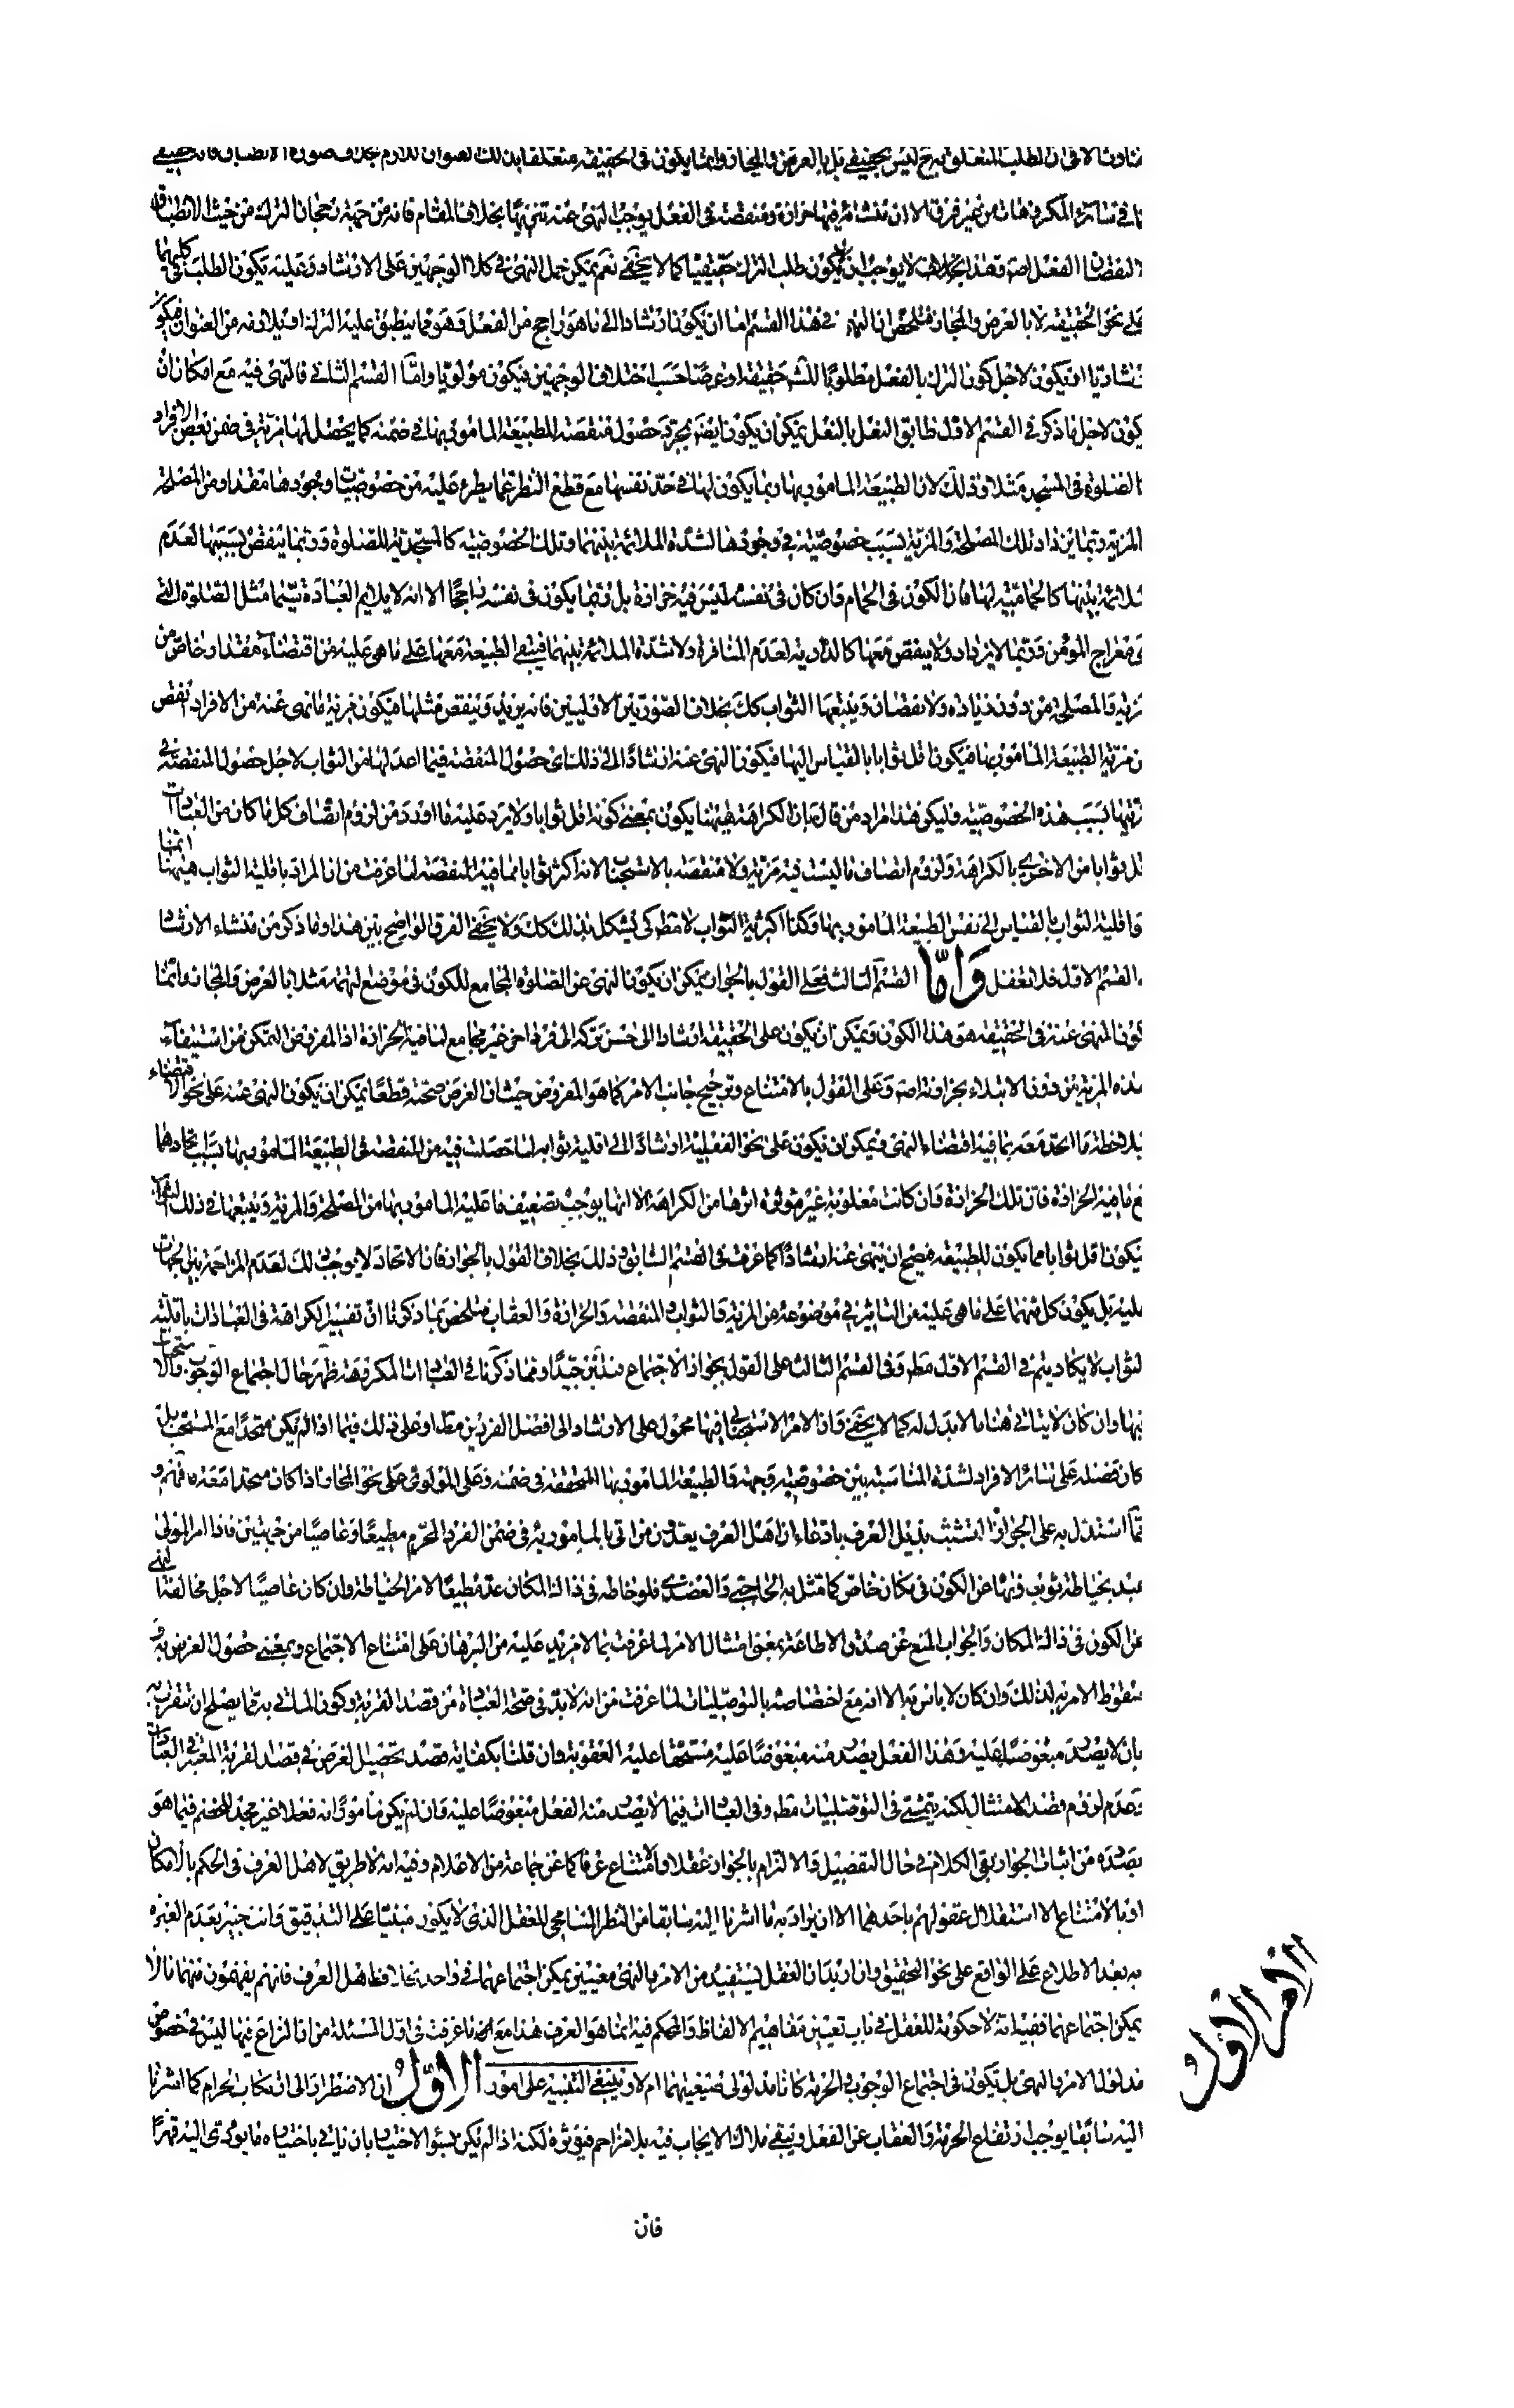 الا في ان الطلب المتعلق به ح ليس بحقيقي بل بالعرض والمجاز وانما يكون في الحقيقة متعلقا بذلك العنوان الملازم بخلاف صورة الانطباق فانه حقيقي
كما في سائر المكروهات من غير فرق الا ان منشائه فيها حزازة ومنقصة في الفعل يوجب النهي عنه تنزيها بخلاف المقام فانه من جهة رجحان الترك من حيث الانطباق لا
النقصان الفعل اصه وهذا لا يوجب ان يكون طلب الترك حقيقيا كما لا يخفى نعم يمكن حمل النهي في كلا الوجهين على الارشاد وعليه يكون الطلب في كليهما
على نحو الحقيقة لا بالعرض والمجاز فتلخص ان النهى في هذا القسم اما ان يكون ارشادا الى ما هو راجح من الفعل وهو فيما ينطبق عليه الترك او يلازمه من العنوان فيكون
رشاديا او يكون لاجل كون الترك بالفعل مطلوبا للش حقيقة او عرضا حسب اختلاف الوجهين فيكون مولويا واما القسم الثاني فالنهي فيه مع امكان ان
يكون لاجل ما ذكر في القسم الاول طابق النعل بالنعل يمكن ان يكون ايضا بمجرد حصول منقصة للطبيعة المامور بها في ضمنه كما يحصل لها مزية في ضمن بعض الافراد
الصلوة في المسجد مثلا وذلك لان الطبيعة المامور بها ربما يكون لها في حد نفسها مع قطع النظر عما يطرء عليه من خصوصيات وجودها مقدار من المصلحة
المزية وربما يزداد تلك المصلحة والمزية بسبب خصوصية في وجودها لشدة الملائمة بينهما وتلك الخصوصية كالمسجدية للصلوة وربما ينقص بسببها لعدم
ملائمة بينها كالحمامية لها فان الكون في الحمام وان كان في نفسه ليس فيه حزازة بل ربما يكون في نفسه راجحا الا انه لا يلايم العبادة سيما مثل الصلوة التي
هي معراج المؤمن وربما لا يزداد ولا ينقص معها كالدارية لعدم المنافرة ولا شدة الملائمة بينهما فيبقى الطبيعة معها على ما هي عليه من اقتضاء مقدار خاص من
زية والمصلحة من دون زيادة ولا نقصان ويتبعها الثواب كك بخلاف الصورتين الاوليين فانه يزيد وينقص مثلها فيكون مزية ما نهى عنه من الافراد انقص
ن مزية الطبيعة المامور بها فيكون اقل ثوابا بالقياس اليها فيكون النهي عنه ارشادا الى ذلك اى حصول المنقصة فيما اعد لها من الثواب لاجل حصول المنقصة في
زيتها بسبب هذه الخصوصية وليكن هذا مراد من قال بان الكراهة هيهنا يكون بمعنى كونه اقل ثوابا ولا يرد عليه ما اورد من لزوم اتصاف كل ما كان من العبادات
اقل ثوابا من الاخرى بالكراهة ولزوم اتصاف ما ليست فيه مزية ولا منقصة بالاستحباب لانه اكثر ثوابا مما فيه المنقصة لما عرفت من ان المراد باقلية الثواب هيهنا انما
هو اقلية الثواب بالقياس الى نفس الطبيعة المامور بها وكذا اكثرية الثواب لا مطه كى يشكل بذلك كك ولا يخفى الفرق الواضح بين هذا وما ذكر من منشاء الارشاد
القسم الاول فلا تغفل وامّا القسم الثالث فعلى القول بالجواز يمكن ان يكون النهي عن الصلوة المجامع للكون في موضع التهمة مثلا بالعرض والمجاز وانما
كون المنهى عنه في الحقيقة هو هذا الكون ويمكن ان يكون على الحقيقة ارشادا الى حسن تركه الى فرد اخر غير مجامع لما فيه الحزازة اذ المفروض التمكن من استيفاء
هذه المزية من دون الابتلاء بحزازة اصه وعلى القول بالامتناع وترجيح جانب الامر كما هو المفروض حيث ان الغرض صحته قطعا يمكن ان يكون النهى عنه على نحو الاقتضاء
بملاحظة ما اتحد معه بما فيه اقتضاء النهى ويمكن ان يكون على نحو الفعلية ارشادا الى اقلية ثوابه لما حصلت فيه من المنقصة في الطبيعة المامور بها بسبب اتحادها
مع ما فيه الحزازة فان تلك الحزازة وان كانت مغلوبة غير موثرة اثرها من الكراهة الا انها يوجب تضعيف ما عليه المامور بها من المصلحة والمزية ويتبعها في ذلك الثواب
فيكون اقل ثوابا مما يكون للطبيعة فيصح ان ينهى عنه ارشادا كما عرفت في القسم السابق وذلك بخلاف القول بالجواز فان الاتحاد لا يوجب ذلك لعدم المزاحمة بين الجهات
عليه بل يكون كل منهما على ما هي عليه من التاثير في موضوعه من المزية والثواب والمنقصة والحزازة والعقاب فتلخص بما ذكرنا ان تفسير الكراهة في العبادات باقلية
لثواب لا يكاد يتم في القسم الاول مطه وفي القسم الثالث على القول بجواز الاجتماع فتدبر جيدا ومما ذكرنا في العبادات المكروهة ظهر حال اجتماع الوجوب والاستحباب
فيها وان كان لا يتاتى هنا ما لا بدل له كما لا يخفى وان الامر الاستحبابى فيها محمول على الارشاد الى افضل الفردين مطه او على ذلك فيما اذا لم يكن متحدا مع المستحب بل
كان فضله على سائر الافراد لشدة المناسبة بين خصوصية وجهة والطبيعة المامور بها المتحققة في ضمنه وعلى المولوى على نحو المجاز فاذا كان متحدا معه فافهم و
مما استدل به على الجواز التشبث بذيل العرف بادعاء ان اهل العرف يعدون من اتى بالمامور به في ضمن الفرد المحرم مطيعا وعاصيا من جهتين فاذا امر المولى
عبده بخياطة ثوب ونهاه عن الكون في مكان خاص كما مثل به الحاجبي والعضدي فلو خاطه في ذاك المكان عد مطيعا لامر الخياطة وان كان عاصيا لاجل مخالفة النهي
عن الكون في ذاك المكان والجواب المنع عن صدق الاطاعة بمعنى امتثال الامر لما عرفت بما لا مزيد عليه من البرهان على امتناع الاجتماع وبمعنى حصول الغرض به و
سقوط الامر به لذلك وان كان لا باس به الا انه مع اختصاصه بالتوصليات لما عرفت من انه لا بد في صحة العبادة من قصد القربة وكون الماتي به مما يصلح ان يتقرب به
بان لا يصدر مبغوضا عليه وهذا الفعل يصدر منه مبغوضا عليه مستحقا عليه العقوبة وان قلنا بكفاية قصد تحصيل الغرض في قصد القربة المعتبر في العبادات
وعدم لزوم قصد الامتثال لكنه يتمشى في التوصليات مطه وفي العبادات فيما لا يصدر منه الفعل مبغوضا عليه وان لم يكن مامورا به فعلا غير مجد للخصم فيما هو
بصدده من اثبات الجواز بقى الكلام في حال التفصيل والالتزام بالجواز عقلا والامتناع عرفا كما عن جماعة من الاعلام وفيه انه لا طريق لاهل العرف في الحكم بالامكان
او بالامتناع الا استقلال عقولهم باحدهما الا ان يراد به ما اشرنا اليه سابقا من النظر التسامحي للعقل الذي لا يكون مبتنيا على التدقيق وانت خبير بعدم العبرة
به بعد الاطلاع على الواقع على نحو التحقيق وان اريد ان العقل يستفيد من الامر والنهى معنيين يمكن اجتماعهما في واحد بخلاف اهل العرف فانهم يفهمون منهما ما لا
يمكن اجتماعهما ففيه انه لا حكومة للعقل في باب تعيين مفاهيم الالفاظ والمحكم فيه انما هو العرف هذا مع ما عرفت في اول المسئلة من ان النزاع فيها ليس في خصوص
مدلول الامر والنهى بل يكون في اجتماع الوجوب والحرمة كانا مدلولي صيغتيهما ام لا وينبغي التنبيه على امور الاوّل ان الاضطرار الى ارتكاب الحرام كما اشرنا
اليه سابقا يوجب ارتفاع الحرمة والعقاب عن الفعل ويبقى ملاك الايجاب فيه بلا مزاحم فيؤثره لكنه اذا لم يكن بسوء الاختيار بان ياتى باختياره ما يؤدى اليه قهرا
الأمر الأول
فان